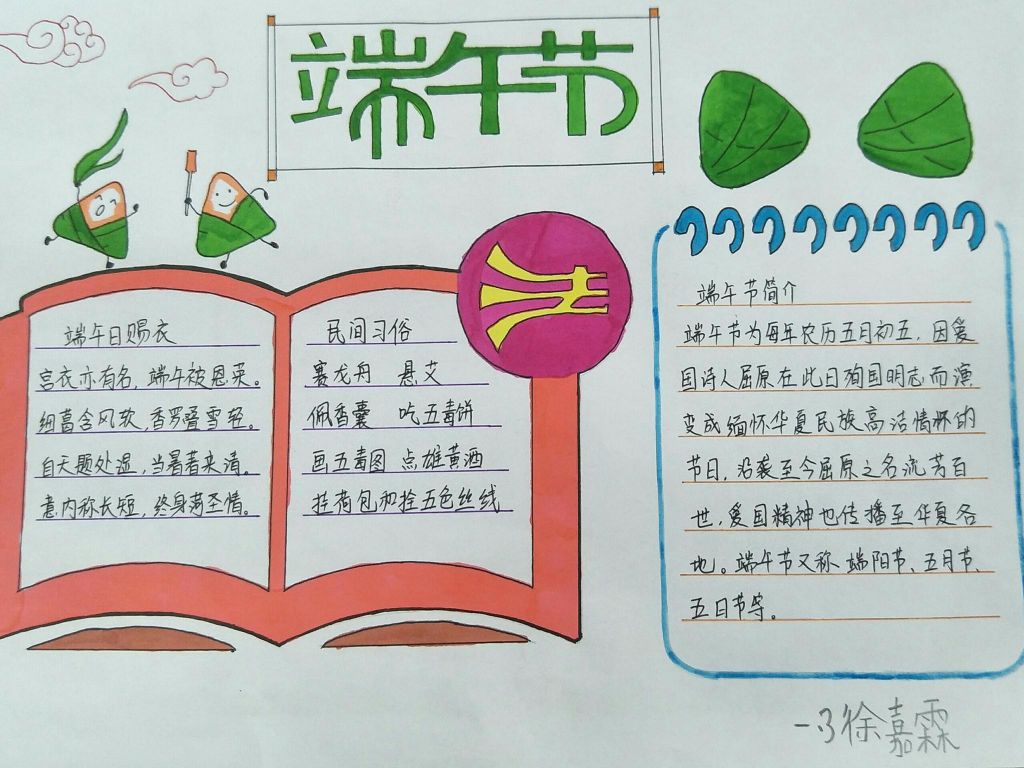 端午节
端午日赐衣
宫衣亦有名,端午被恩荣。
细葛含风软,香罗叠雪轻。
自天题处湿,当暑著来清。
意内称长短,终身荷圣情。
民间习俗
赛龙舟 悬艾
佩香囊 吃五毒饼
画五毒图 点雄黄酒
挂荷包和拴五色丝线
端午节简介
端午节为每年农历五月初五,因爱
国诗人屈原在此日殉国明志而演
变成缅怀华夏民族高洁情怀的
节日,沿袭至今屈原之名流芳百
世,爱国精神也传播至华夏各
地。端午节又称端阳节、五月节、
五日节等。
一.3徐嘉霖